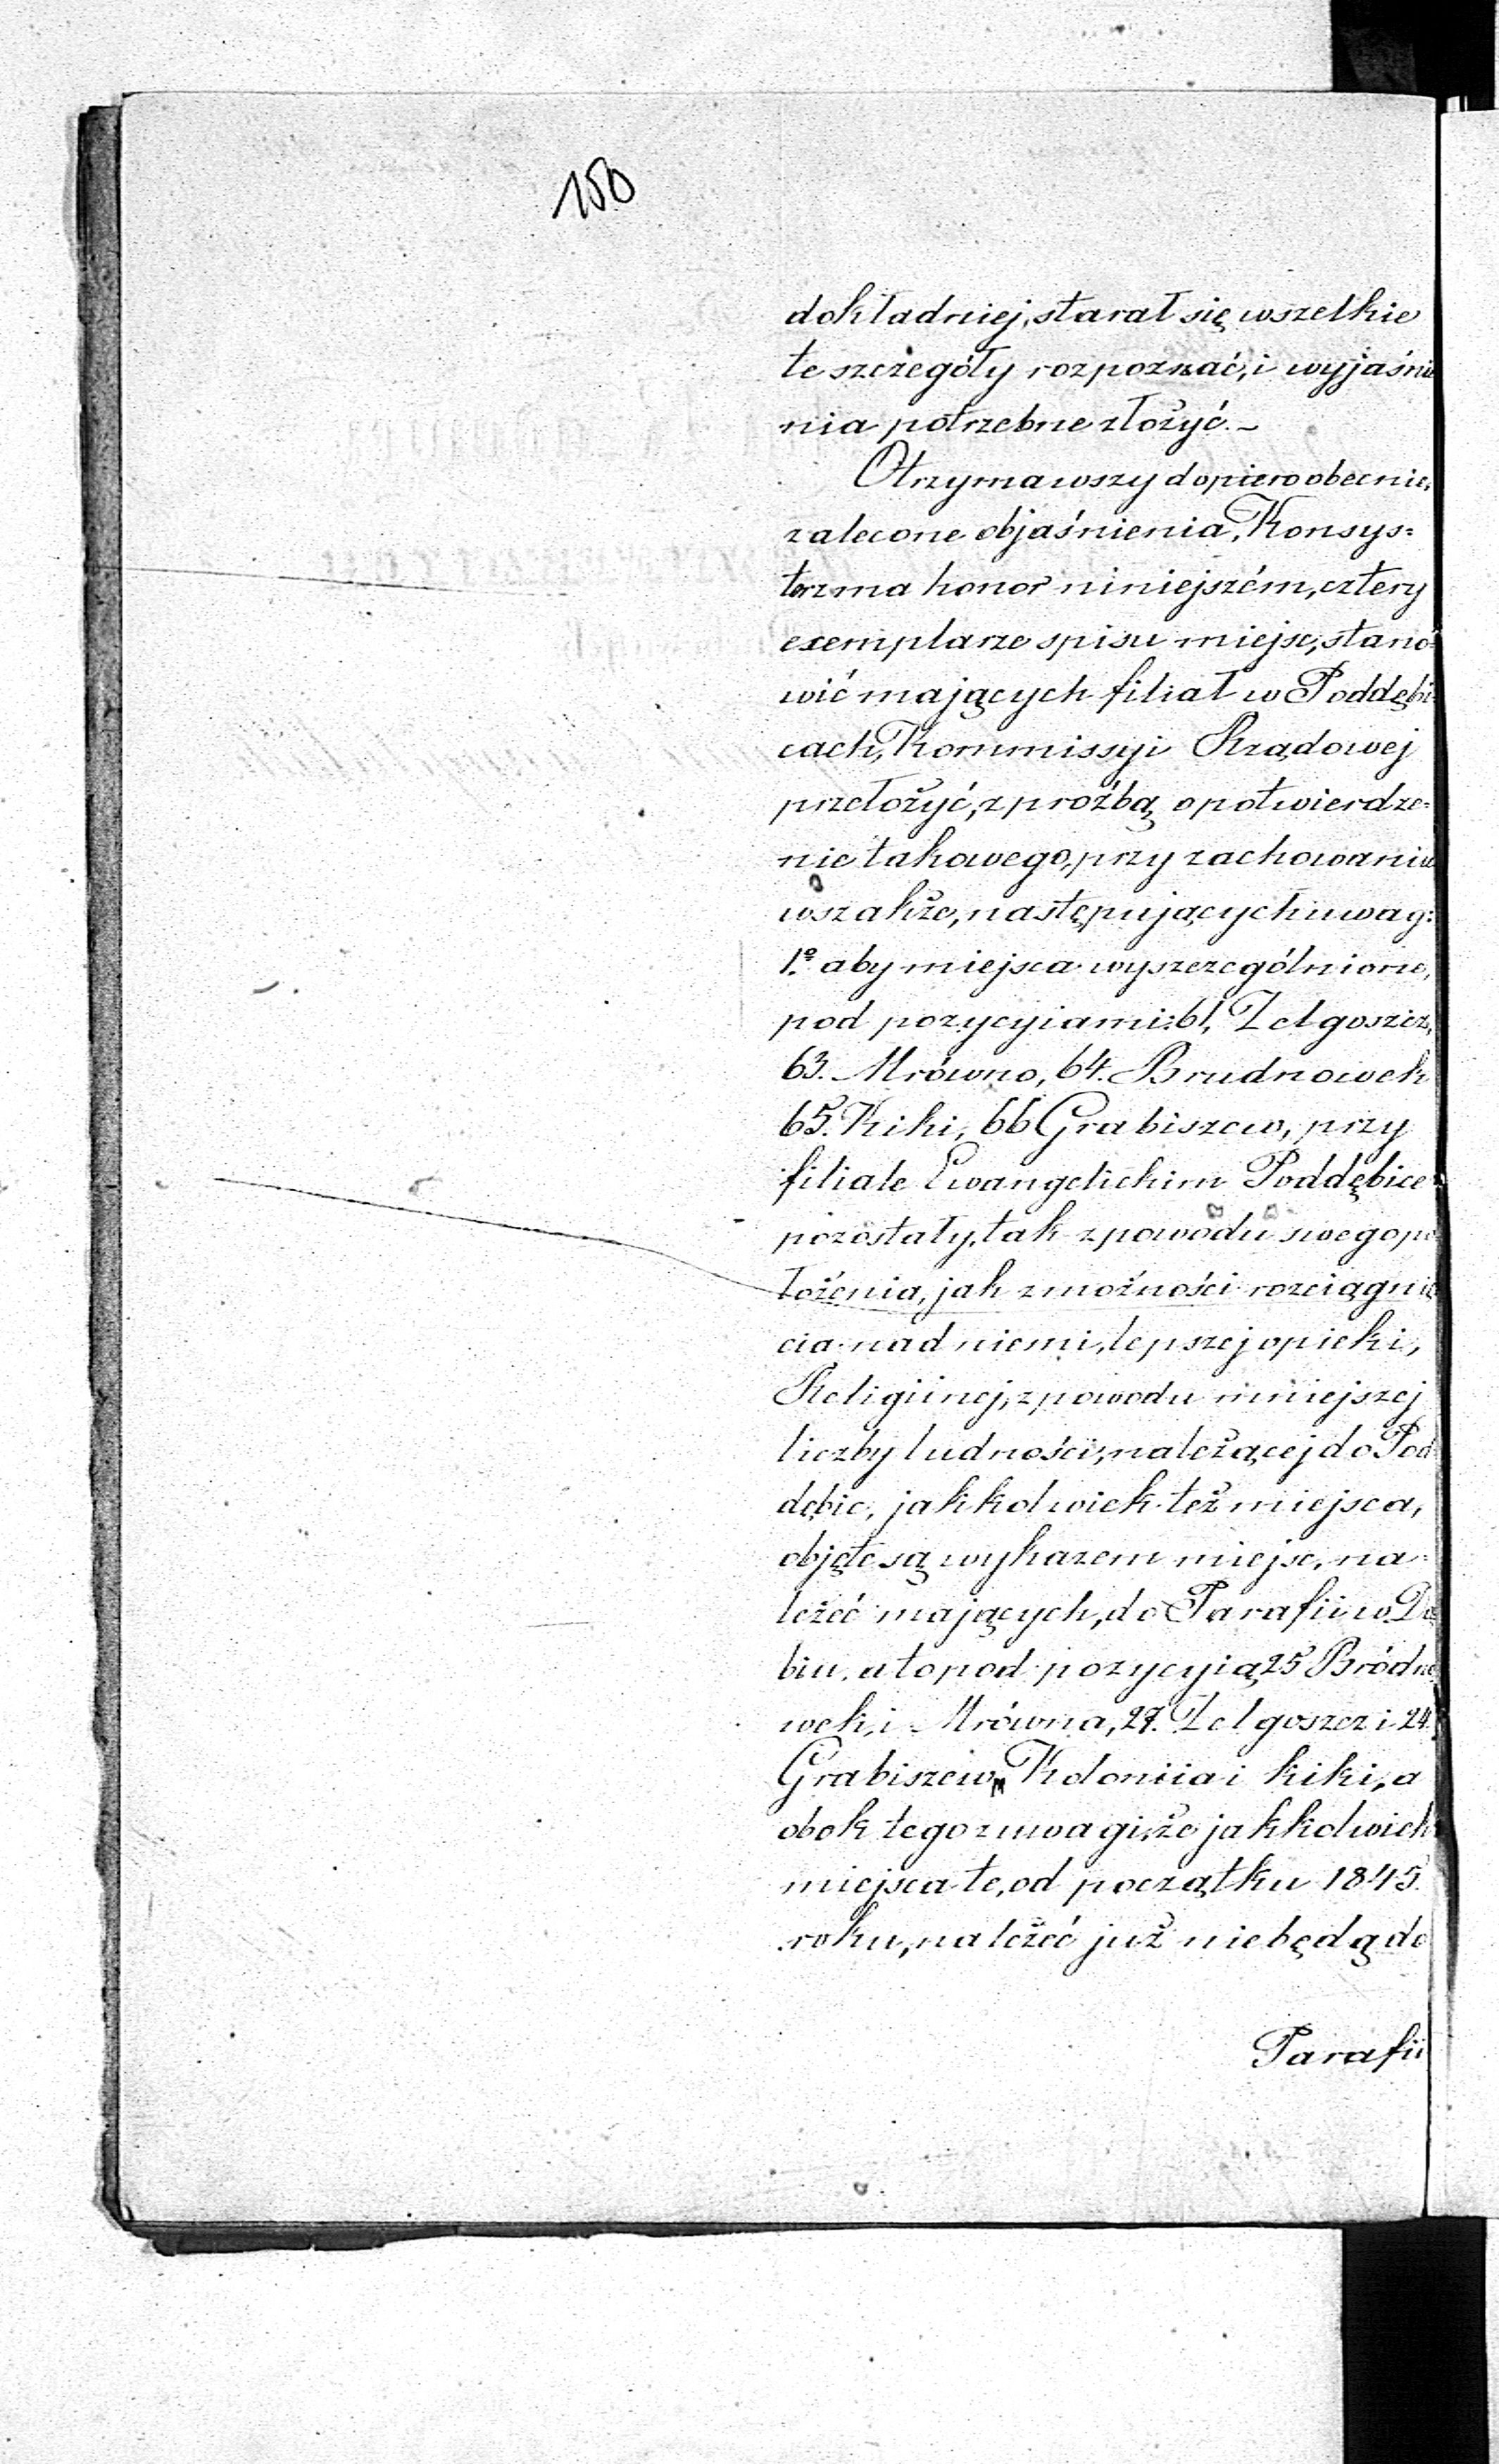 150
dokładniej, starał się wszelkie
te szczegóły rozpoznać, i wyjaśnie
nia potrzebne złożyć. –
Otrzymawszy dopiero obecnie,
zalecone objaśnienia, Konsys=
torz ma honor niniejszém, cztery
exemplarze spisu miejsc, stano=
wić mających filiał w Poddębi
cach, Kommissyi Rządowej
przełożyć, z proźbą o potwierdze=
nie takowego, przy zachowaniu
wszakże, następujących uwag:
1.º aby miejsca wyszczególnione,
pod pozycyiami: 61, Zelgoszcz,
63. Mrówno, 64. Brudnowek
65. Kiki, 66 Grabiszew, przy
filiale Ewangelickim Poddębice
pozostały, tak z powodu swego po
łożenia, jak z możności rozciągnię
cia nad niemi, lepszej opieki,
Religiinej, z powodu mniejszej
liczby ludności, należącej do Pod
dębic, jakkolwiek też miejsca,
objęte są wykazem miejsc, na=
leżeć mających, do Parafii w Dą
biu, a to pod pozycyią 25 Bródno
wek, i Mrówna, 27. Zelgoszcz i 24.
Grabiszew, Koloniia i kiki, a
obok tego z uwagi, że jakkolwiek
miejsca te, od początku 1845.
roku, należeć już nie będą do
Parafii